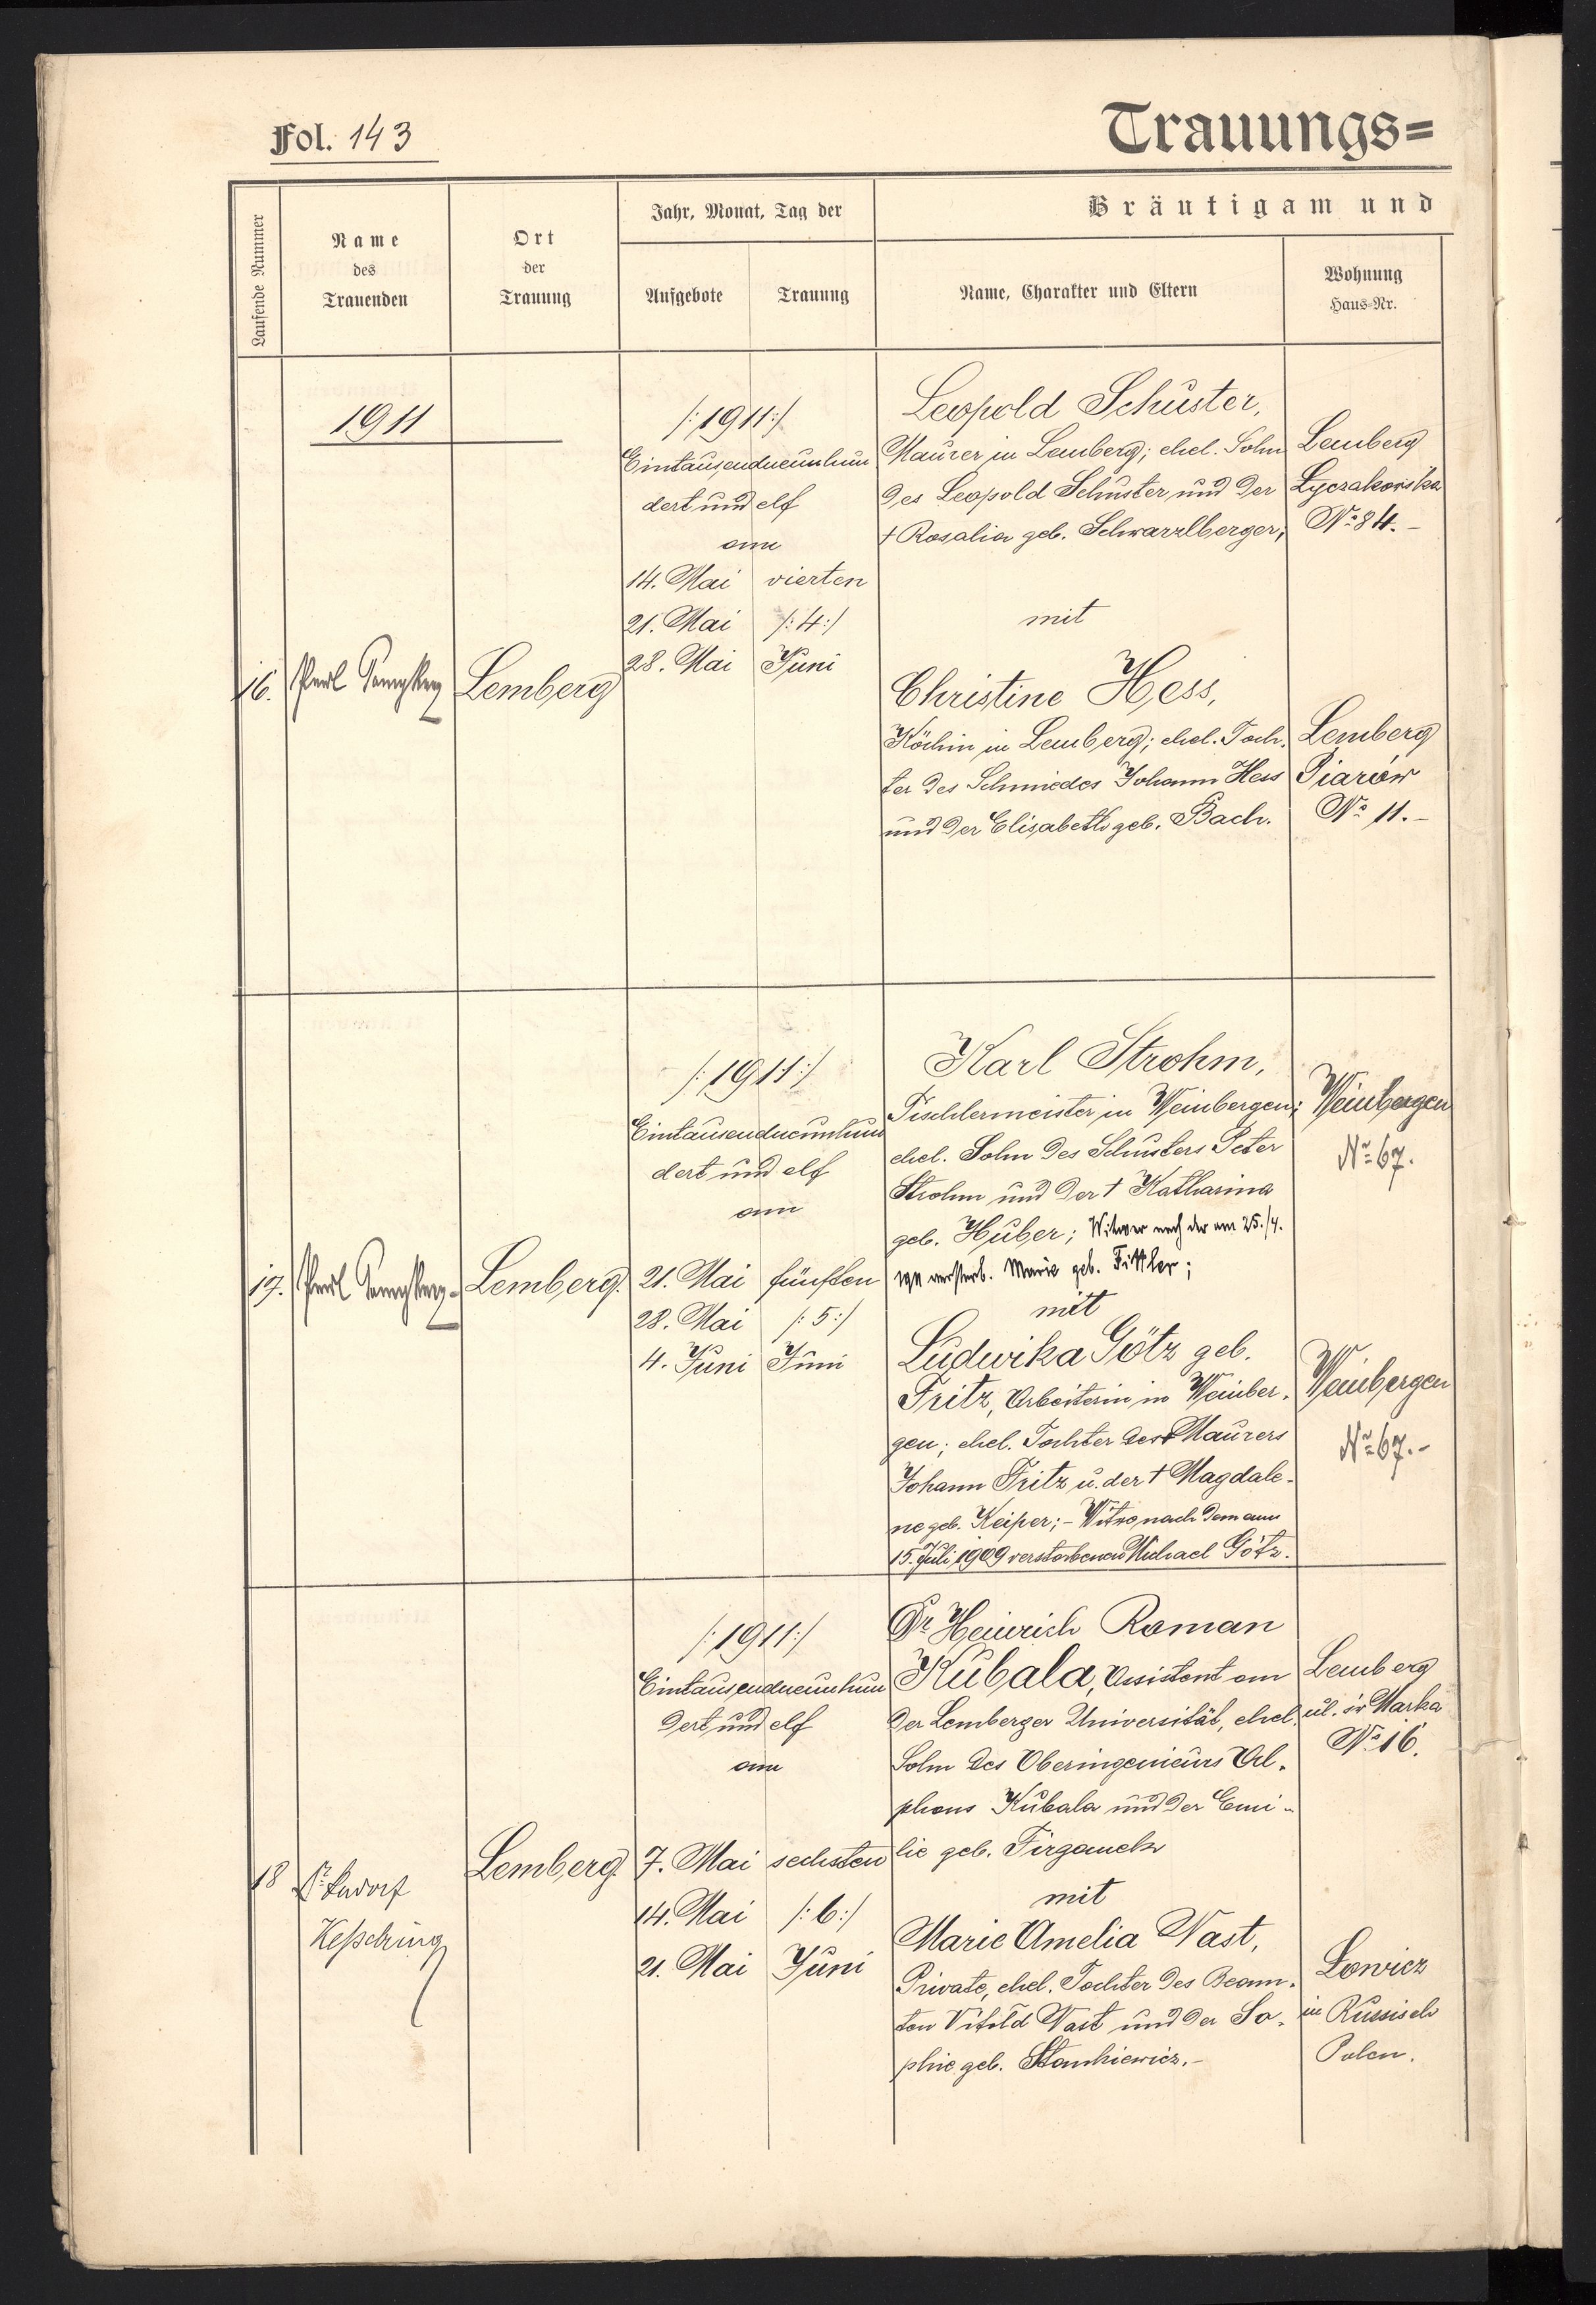 Fol. 143
Trauungs=
Laufende Nummer
Name
des
Trauenden
Ort
der
Trauung
Jahr, Monat, Tag der
Aufgebote
Trauung
Bräutigam und
Name, Charakter und Eltern
Wohnung
Haus-Nr.
1911
16.
Lemberg
/:1911:/
Eintausendneunhun
dert und elf
am
14. Mai vierten
21. Mai /:4:/
28. Mai Juni
Leopold Schuster,
Maurer in Lemberg; ehel. Sohn
des Leopold Schuster und der
† Rosalia geb. Schwarzlberger;
mit
Christine Hess,
Köchin in Lemberg; ehel. Toch-
ter des Schmiedes Johann Hess
und der Elisabeth geb. Bach.
Lemberg
Lyczakowska
No 84.-
Lemberg
Piarów
No 11.-
17.
Lemberg.
/:1911:/
Eintausendneunhun
dert und elf
am
21. Mai fünften
28. Mai /:5:/
4. Juni Juni
Karl Strohm,
Tischlermeister in Weinbergen;
ehel. Sohn des Schusters Peter
Strohm und der † Katharina
geb. Huber; Witwer nach der am 25./4.
1911 verstorb. Marie geb. Fittler;
mit
Ludwika Götz geb.
Fritz, Arbeiterin in Weinber-
gen; ehel. Tochter des † Maurers
Johann Fritz u. der † Magdale-
ne geb. Keiper;- Witwe nach dem am
15. Juli 1909 verstorbenen Michael Götz.
Weinbergen
No 67.
Weinbergen
No 67.-
18
Dr.
Kesselring
Lemberg.
/:1911:/
Eintausendneunhun
dert und elf
am
7. Mai sechsten
14. Mai /:6:/
21. Mai Juni
Dr Heinrich Roman
Kubala, Assistent an
der Lemberger Universität, ehel.
Sohn des Oberingenieurs Al-
phons Kubala und der Emi-
lie geb. Firganek
mit
Marie Amelia Nast,
Private, ehel. Tochter des Beam-
ten Vitold Nast und der So-
phie geb. Stankiewicz.-
Lemberg
ul. św Marka
No 16.
Lowicz
in Russisch
Polen.